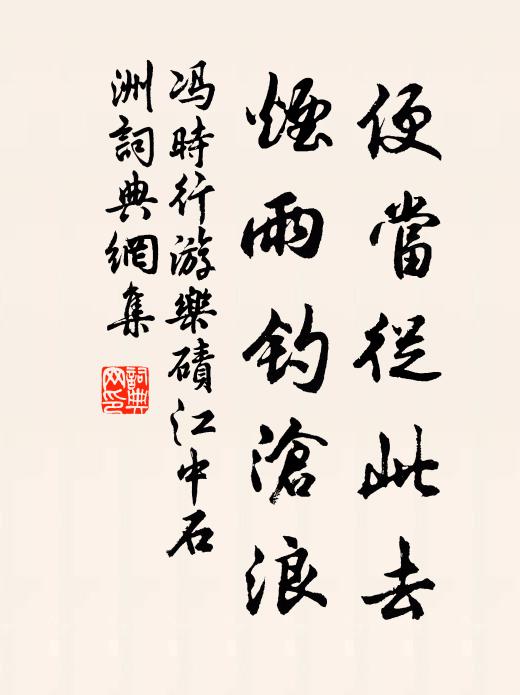 便當從此去
煙雨釣滄浪
冯時行游樂磧江中石
洲詞典網集
詞典網印